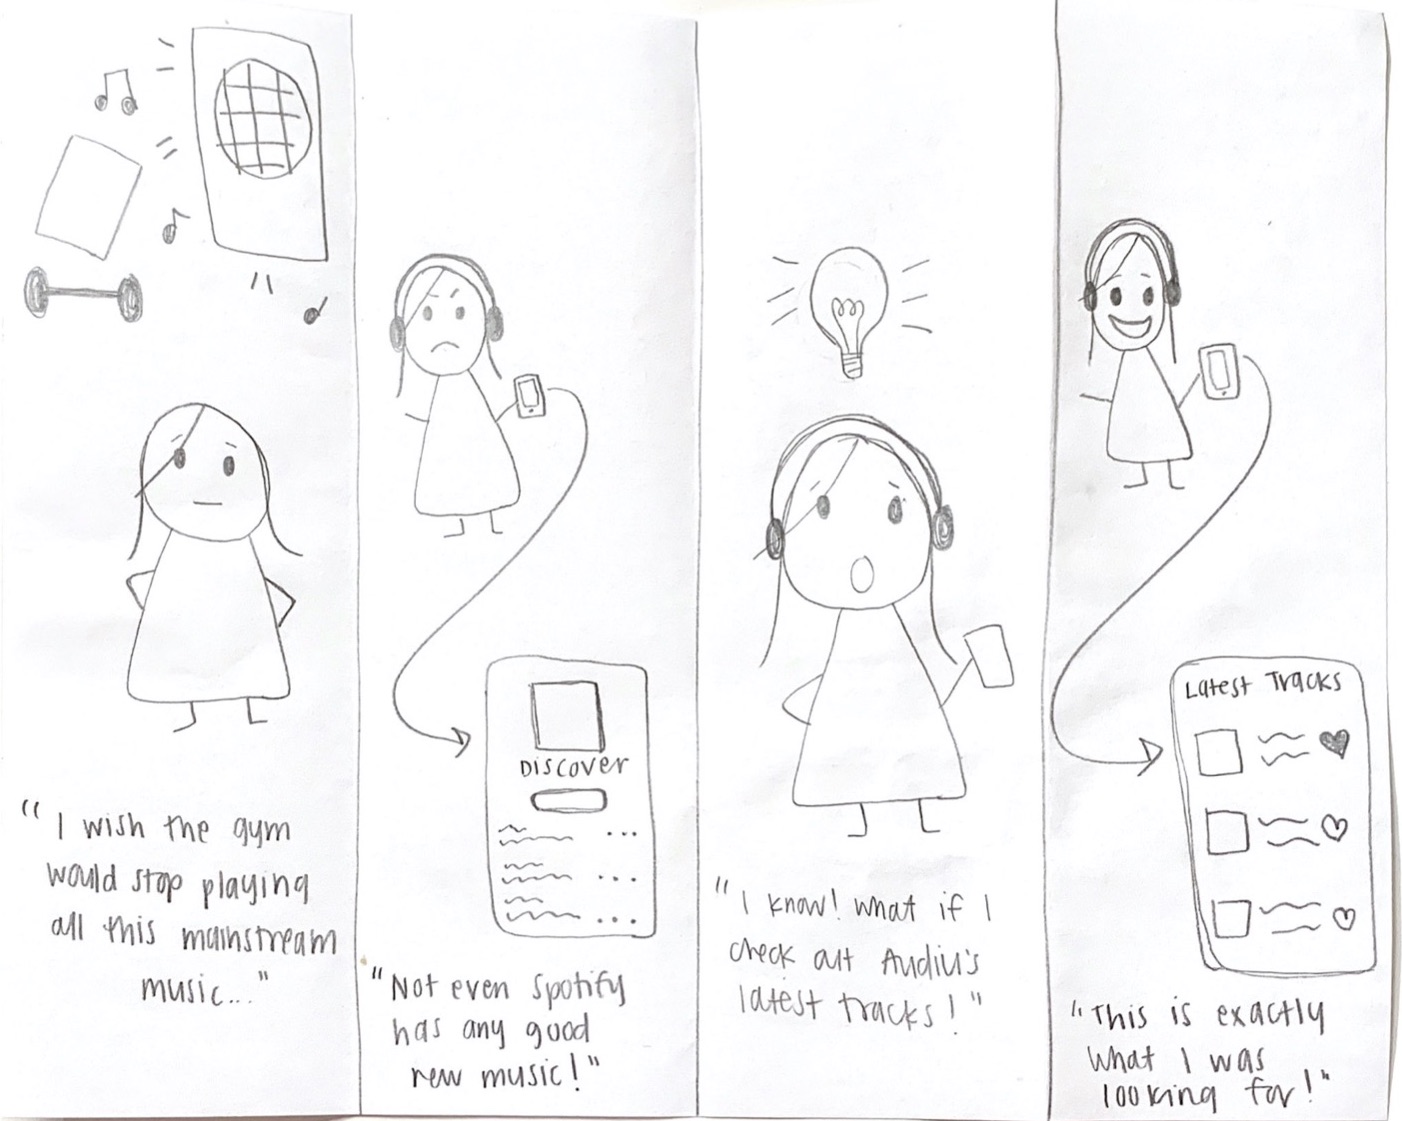 "I wish the gym
would stop playing
all this mainstream
music..."
DISCOVER
"Not even Spotify
has any good
new music!"
"I know! What if I
check out Audius's
latest tracks!"
Latest Tracks
"This is exactly
what I was
looking for!"